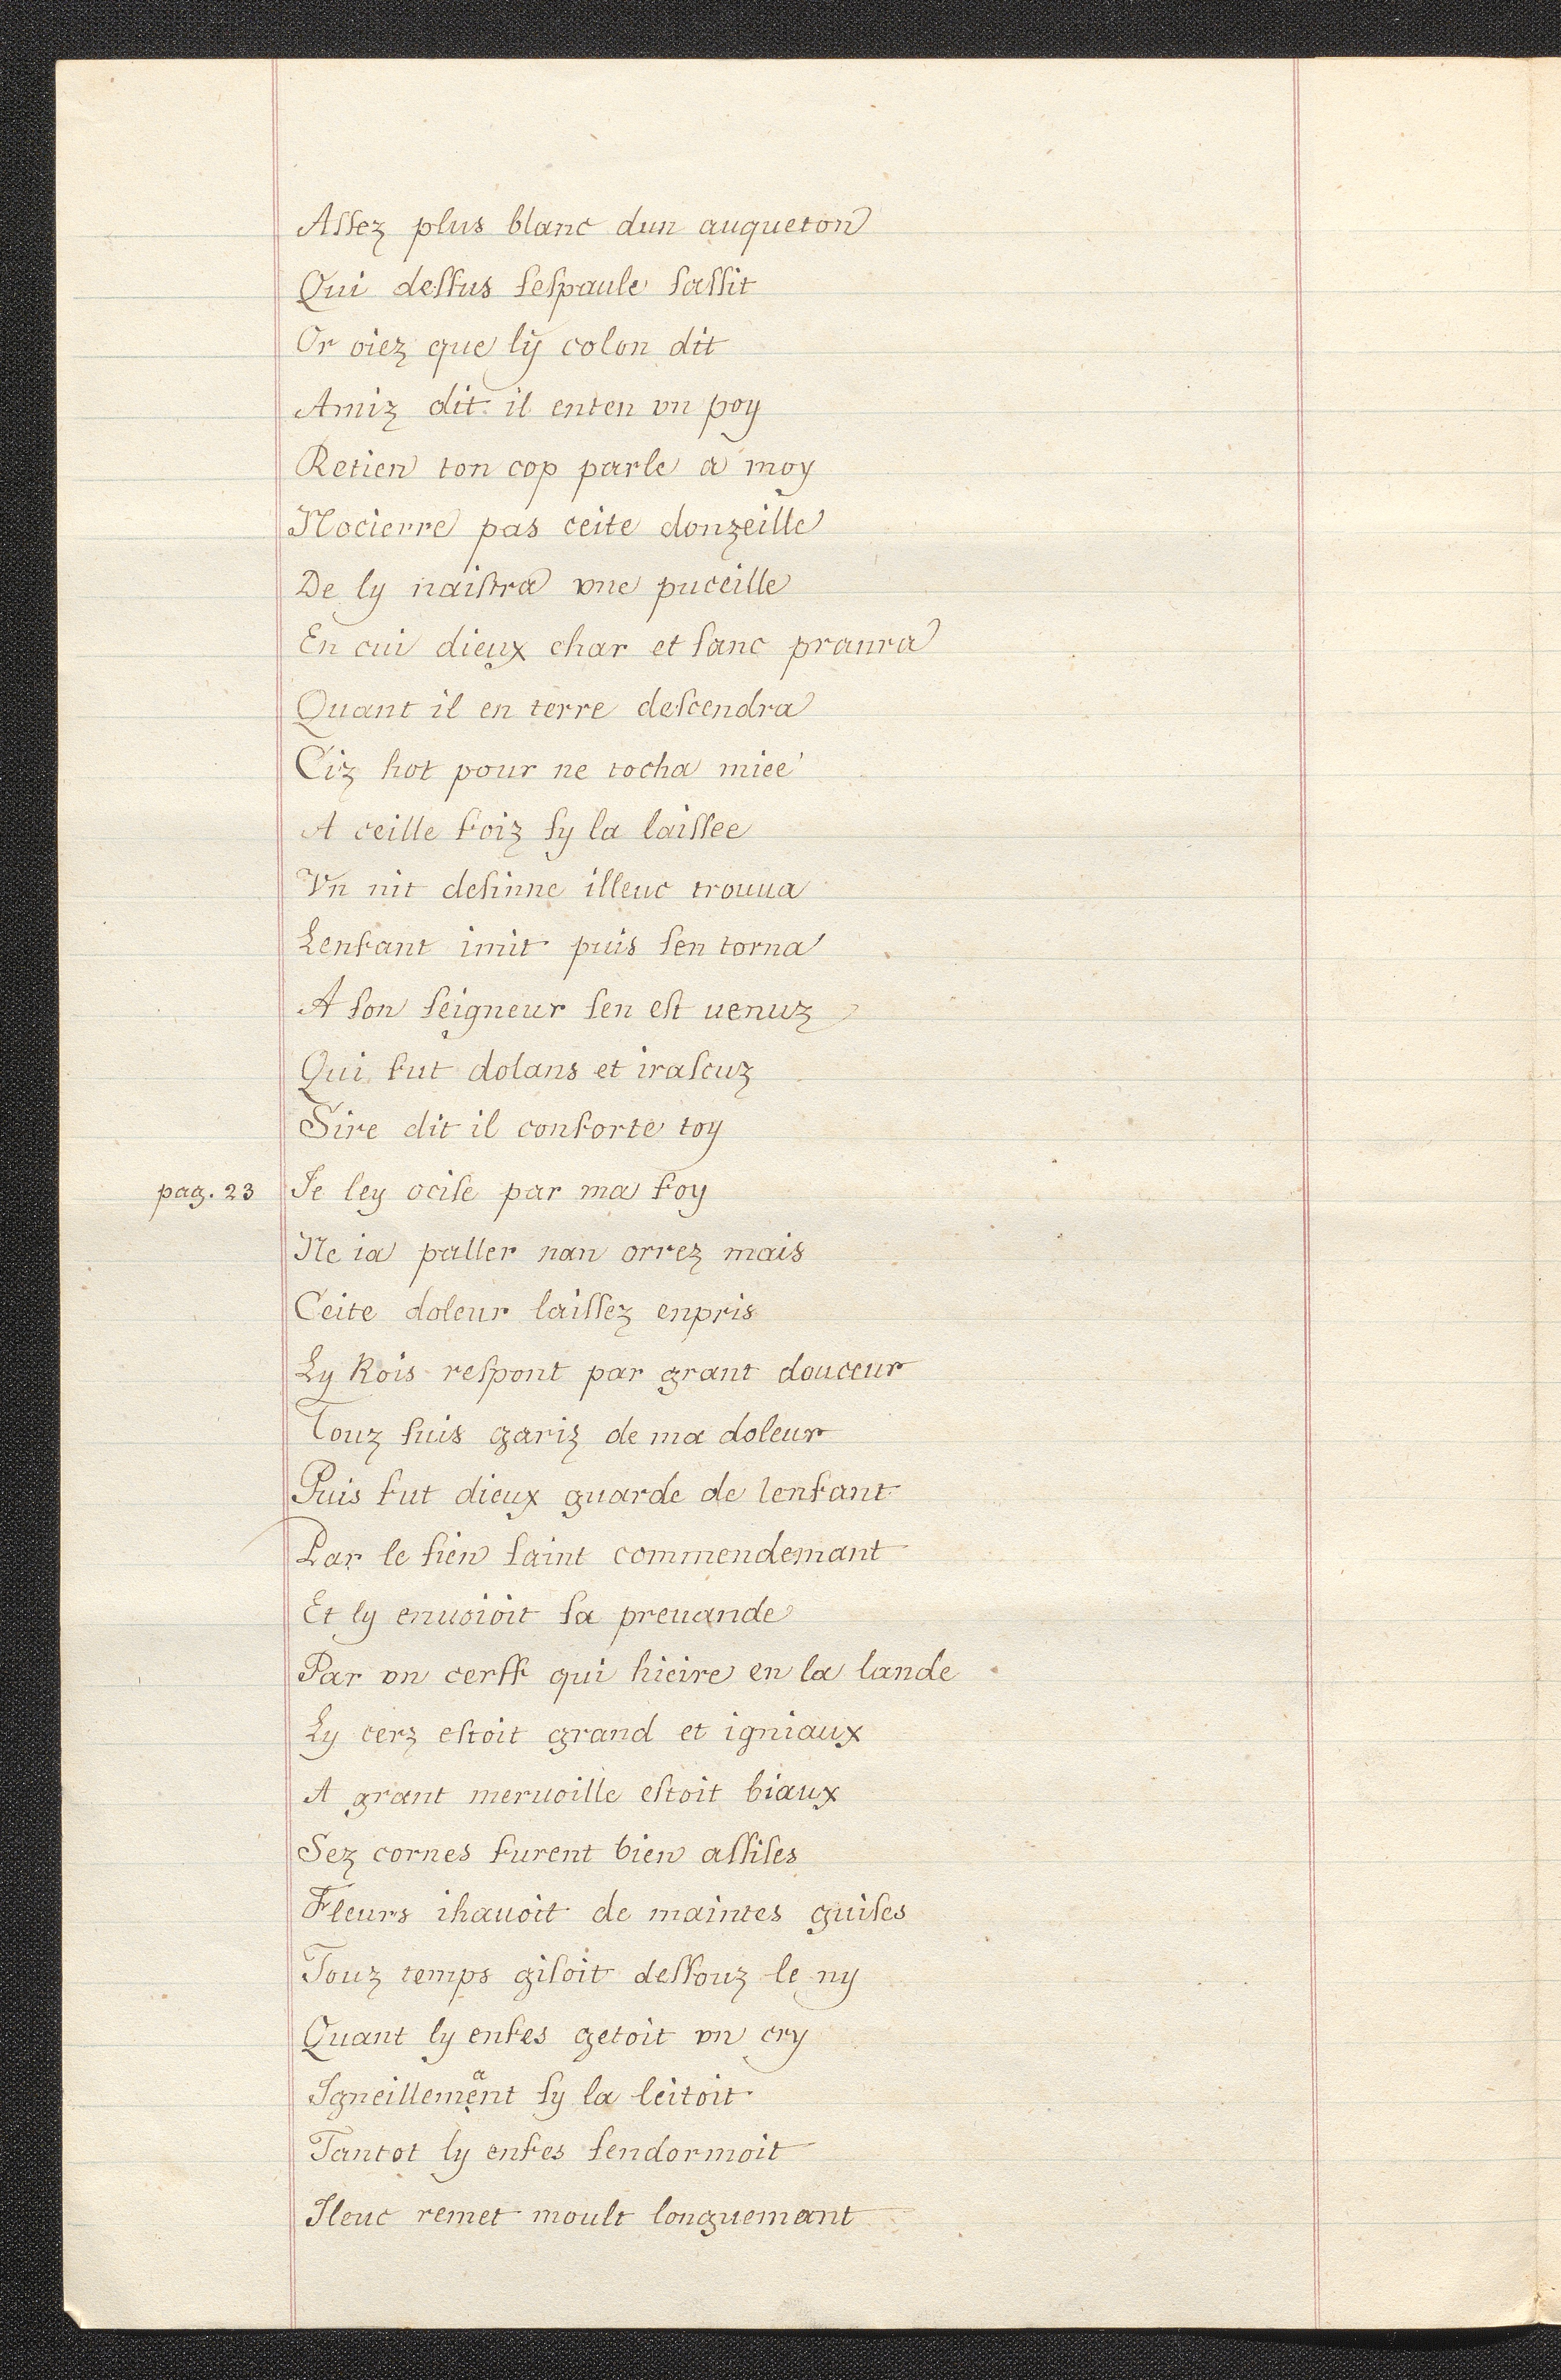 Aſſez plus blanc dun auqueton
Qui deſſus ſeſpaule ſaſſit
Or oiez que ly colon dit
Amiz dit il enten vn poy
Retien ton cop parle a moy
Nocierre pas ceite donzeille
De ly naiſtra vne puceille
En cui dieux char et ſanc pranra
Quant il en terre deſcendra
Ciz hot pour ne tocha miee
A ceille foiz ſy la laiſſee
Vn nit deſinne illeuc trouua
Lenfant imit puis ſen torna
A ſon ſeigneur ſen eſt uenuz
Qui fut dolans et iraſcuz
Sire dit il conforte toy
pag. 23 Je ley ociſe par ma foy
Ne ia paller nan orrez mais
Ceite doleur laiſſez enpris
Ly Rois reſpont par grant douceur
Touz ſuis gariz de ma doleur
Puis fut dieux guarde de lenfant
Par le ſien ſaint commendemant
Et ly enuoioit ſa preuande
Par vn cerff qui hieire en la lande
Ly cerz eſtoit grand et igniaux
A grant meruoille eſtoit biaux
Sez cornes furent bien aſſiſes
Fleurs ihauoit de maintes guiſes
Touz temps giſoit deſſouz le ny
Quant ly enfes getoit vn cry
Igneillemẹant ſy la leitoit
Tantot ly enfes ſendormoit
Ileuc remet moult longuemant